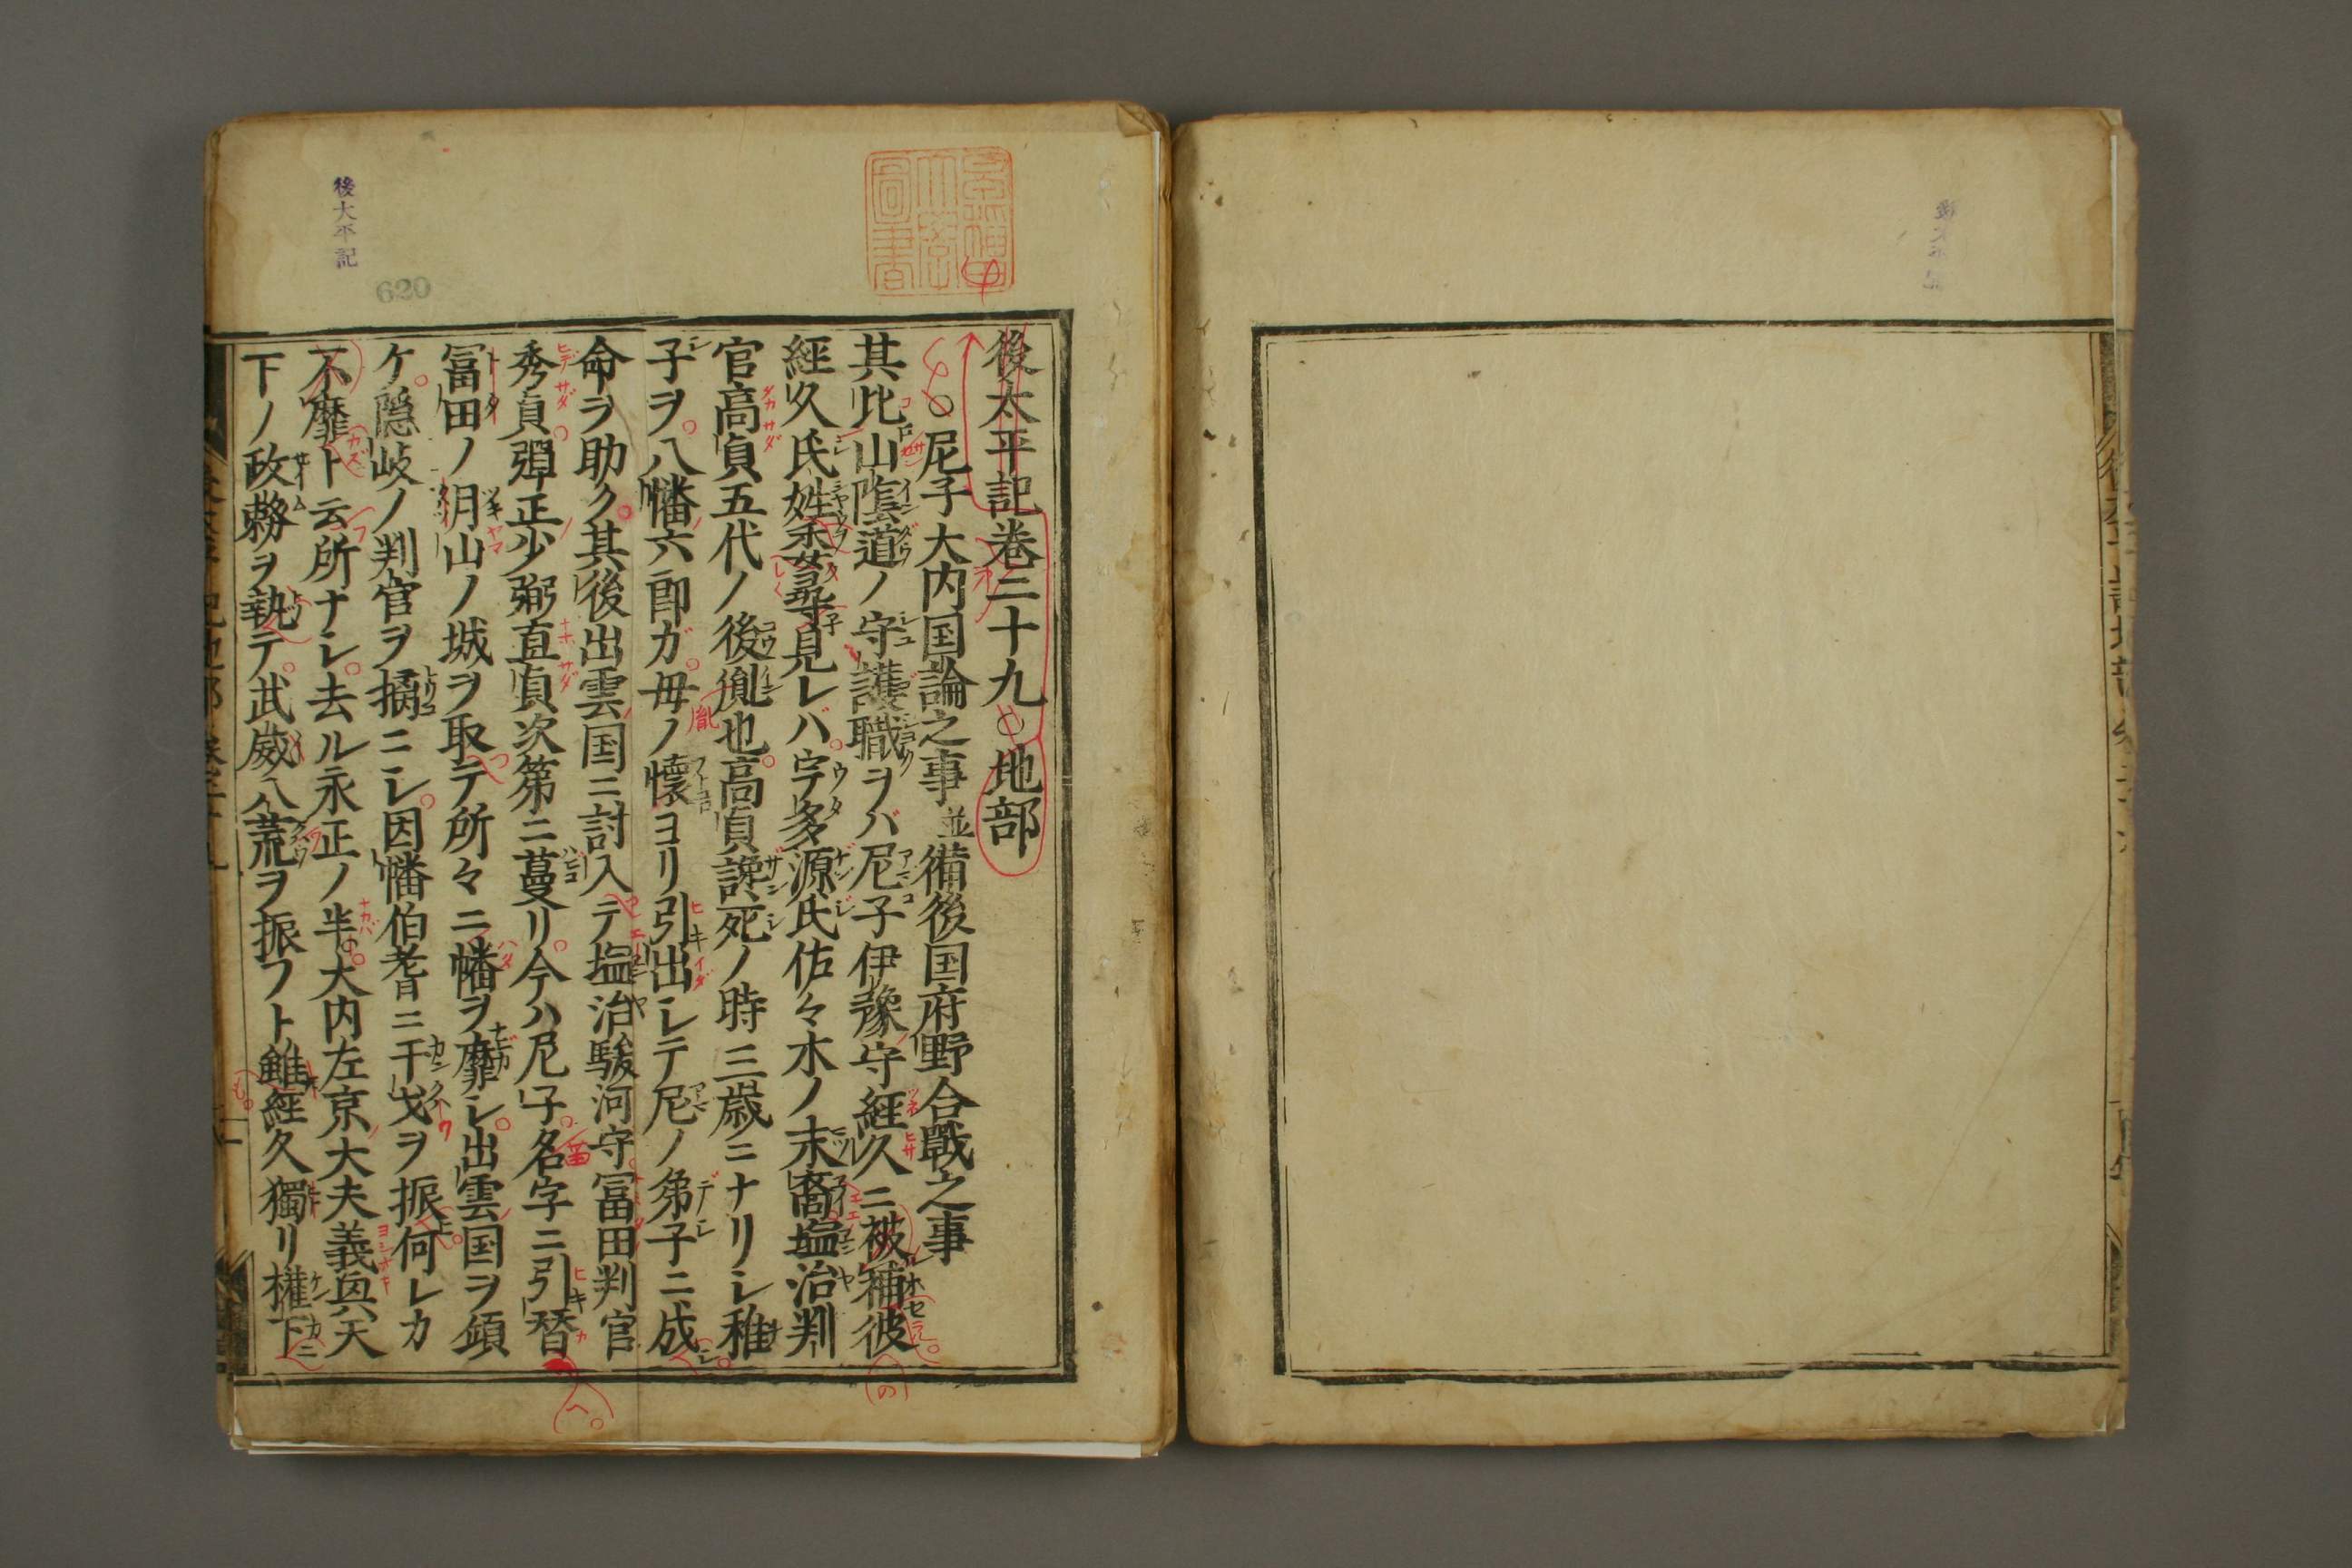 後太平記巻三十九○地部
○尼子大内国論之事並備後国府野合戰之事
其比山陰道ノ守護職ヲバ尼子伊豫守經久ニ被補彼
經久氏姓委尋見レバ宇多源氏佐々木ノ末裔塩冶判
官高貞五代ノ後胤也高貞讒死ノ時三歳ニナリシ稚
子ヲ八幡六郎ガ母ノ懐ヨリ引出シテ尼ノ弟子ニ成シ
命ヲ助ク其後出雲国ニ討入テ塩冶駿河守冨田判官
秀貞彈正少弼直貞次第ニ蔓リ今ハ尼子名字ニ引替
冨田ノ月山ノ城ヲ取テ所々ニ幡ヲ靡シ出雲国ヲ傾
ケ隠岐ノ判官ヲ擒ニシ因幡伯耆ニ干戈ヲ振何レカ
不靡ト云所ナシ去ル永正ノ半大内左京大夫義興天
下ノ政務ヲ執テ武威八荒ヲ振フト雖經久獨リ權下
後太平記
620